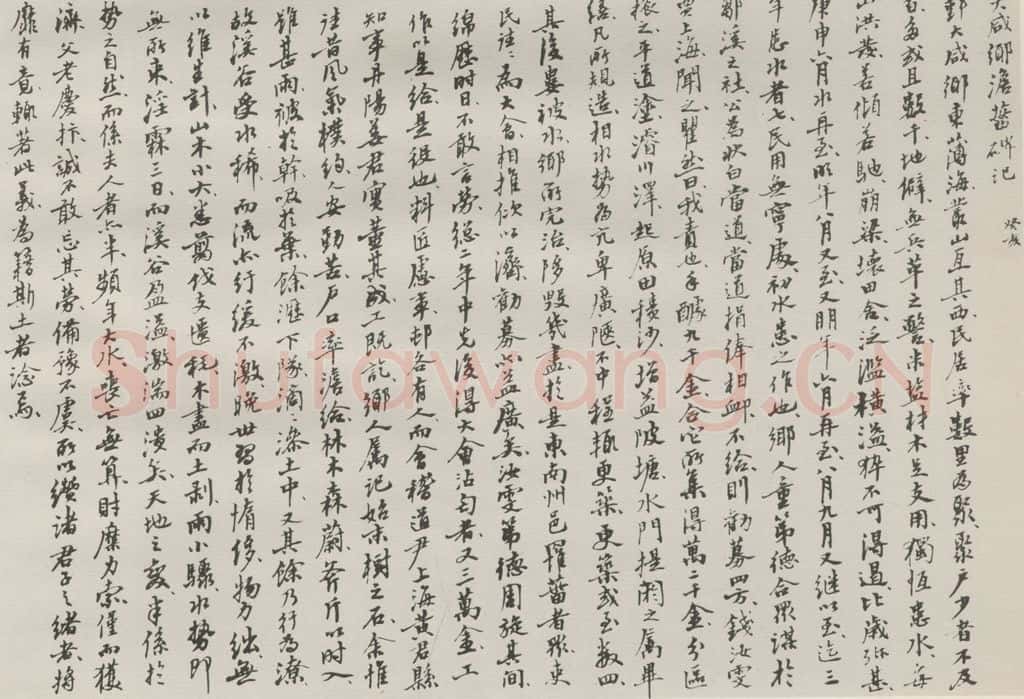 大咸鄉澹菑碑記 癸亥
鄞大咸鄉東薄海叢山亙其西民居率數里為聚聚戶少者不及
百多或且數千地僻無兵革之警米鹽材木足支用獨恆患水每
山洪發若傾若馳崩梁壞田舍泛濫橫溢猝不可得遏比歲弥甚
庚申六月水再至明年八月又至又明年六月再至八月九月又繼以至迄三
年患水者七民用無寧處初水患之作也鄉人童第德合眾謀於
鄒溪之社公為狀白當道當道捐俸相卹不給則勸募四方錢汝雯
賈上海聞之瞿然曰我責也手醵九千金合它所集得萬二千金分區
振之平道塗濬川澤起原田積沙增益陂塘水門堤閼之屬畢
繕凡所規造相水勢為亢卑廣陿不中程輒更築更築或至數四
其後婁被水鄉所完治陊毀幾盡於是東南州邑罹菑者眾吏
民諸為大會相推欣以濟勸募以益廣美汝雯第德周旋其間
綿歷時日不敢言勞總二年中先後得大會沾匄者又三萬金工
作以是給是役也料匠慮事部各有人而會稽道尹上海黃君縣
知事丹陽姜君實董其成工既訖鄉人属記始末樹之石余惟
往昔風氣樸約人安勤苦戶口率澹給林木森蔚斧斤以時入
雖甚雨被於幹及於葉餘漼下隊滴滲土中又其餘乃行為潦
故溪谷受水稀而流亦行緩不激晚世習於惰侈物力絀無
以維生計山木小大悉翦伐支匱耗木盡而土剥雨小驟水勢即
無所束淫霖三日而溪谷盈溢激湍四潰矣天地之變半係於
勢之自然而係夫人者亦半頻年大水喪亡無算財糜力索僅而獲
濟父老慶抃誠不敢忘其勞備豫不虞所以纘諸君子之緒者將
靡有竟輒著此義為籍斯土者諗焉
Shufawang.CN